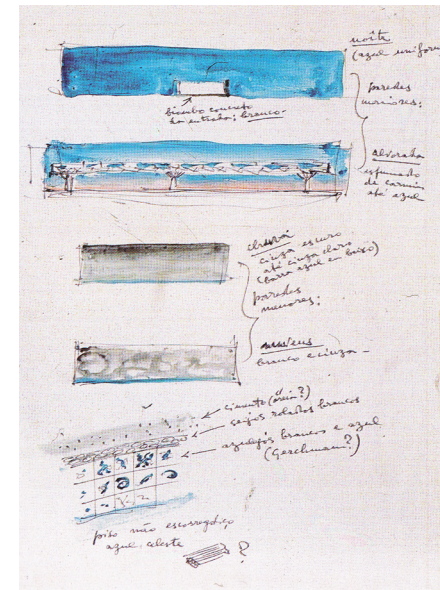 noite
(azul unifor
biombo concreto
na entrada; branco.
paredes
maiores;
alvorada
esfumado
de carmin
até azul
chuva
cinza escuro
até cinza claro
(barra azul em baixo)
paredes
menores;
branco e cinza
cimento (areia?)
seixos rolados brancos
azulejos brancos e azul
(Gerchmann?)
piso não escorregadiço
azul celeste
?